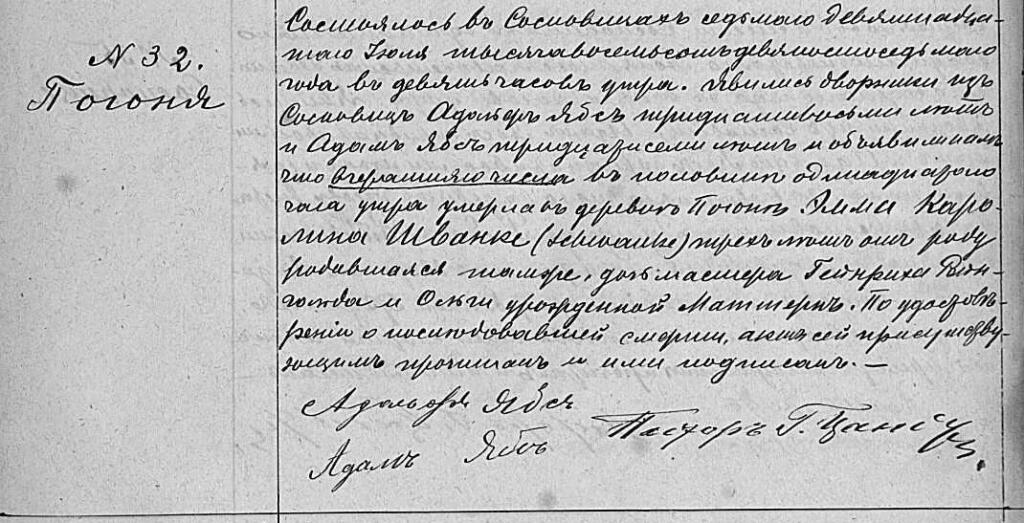 N 32.
Погоня
Состоялось въ Сосновицахъ седьмаго девятнадца-
таго Іюля тысяча восемьсотъ девяносто седьмаго
года въ девять часовъ утра. Явились дворники изъ
Сосновицъ Адольфъ Ябсъ тридцати восьми лѣтъ
и Адамъ Ябсъ тридцати семи лѣтъ и объявили намъ
что вчерашняго числа въ половинѣ одинадцатаго
часа утра умерла въ деревнѣ Погонѣ Эмма Каро-
лина Шванке (Schwanke) трехъ лѣтъ отъ роду
родившаяся тамже, дочь мастера Гейнриха Рейн-
гольда и Ольги урожденной Маттернъ. По удостовѣ-
реніи о послѣдовавшей смерти, актъ сей присутству-
ющимъ прочитанъ и ими подписанъ. —
Адольфъ Ябсъ
Адамъ Ябсъ
Пасторъ Г.